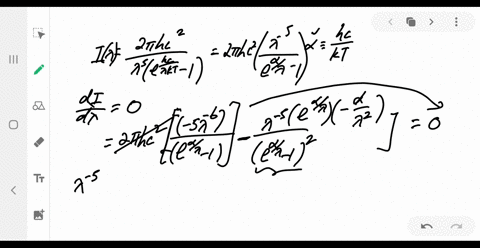 I(λ) = 2πhc² / λ⁵(e^(hc/λkT) - 1) = 2πhc² (λ⁻⁵ / e^(α/λ) - 1) α = hc / kT
dI / dλ = 0
= 2πhc² [ (-5λ⁻⁶) / (e^(α/λ) - 1) ] - λ⁻⁵ (e^(α/λ)) (-α / λ²) / (e^(α/λ) - 1)² ] = 0
λ⁻⁵
Tt